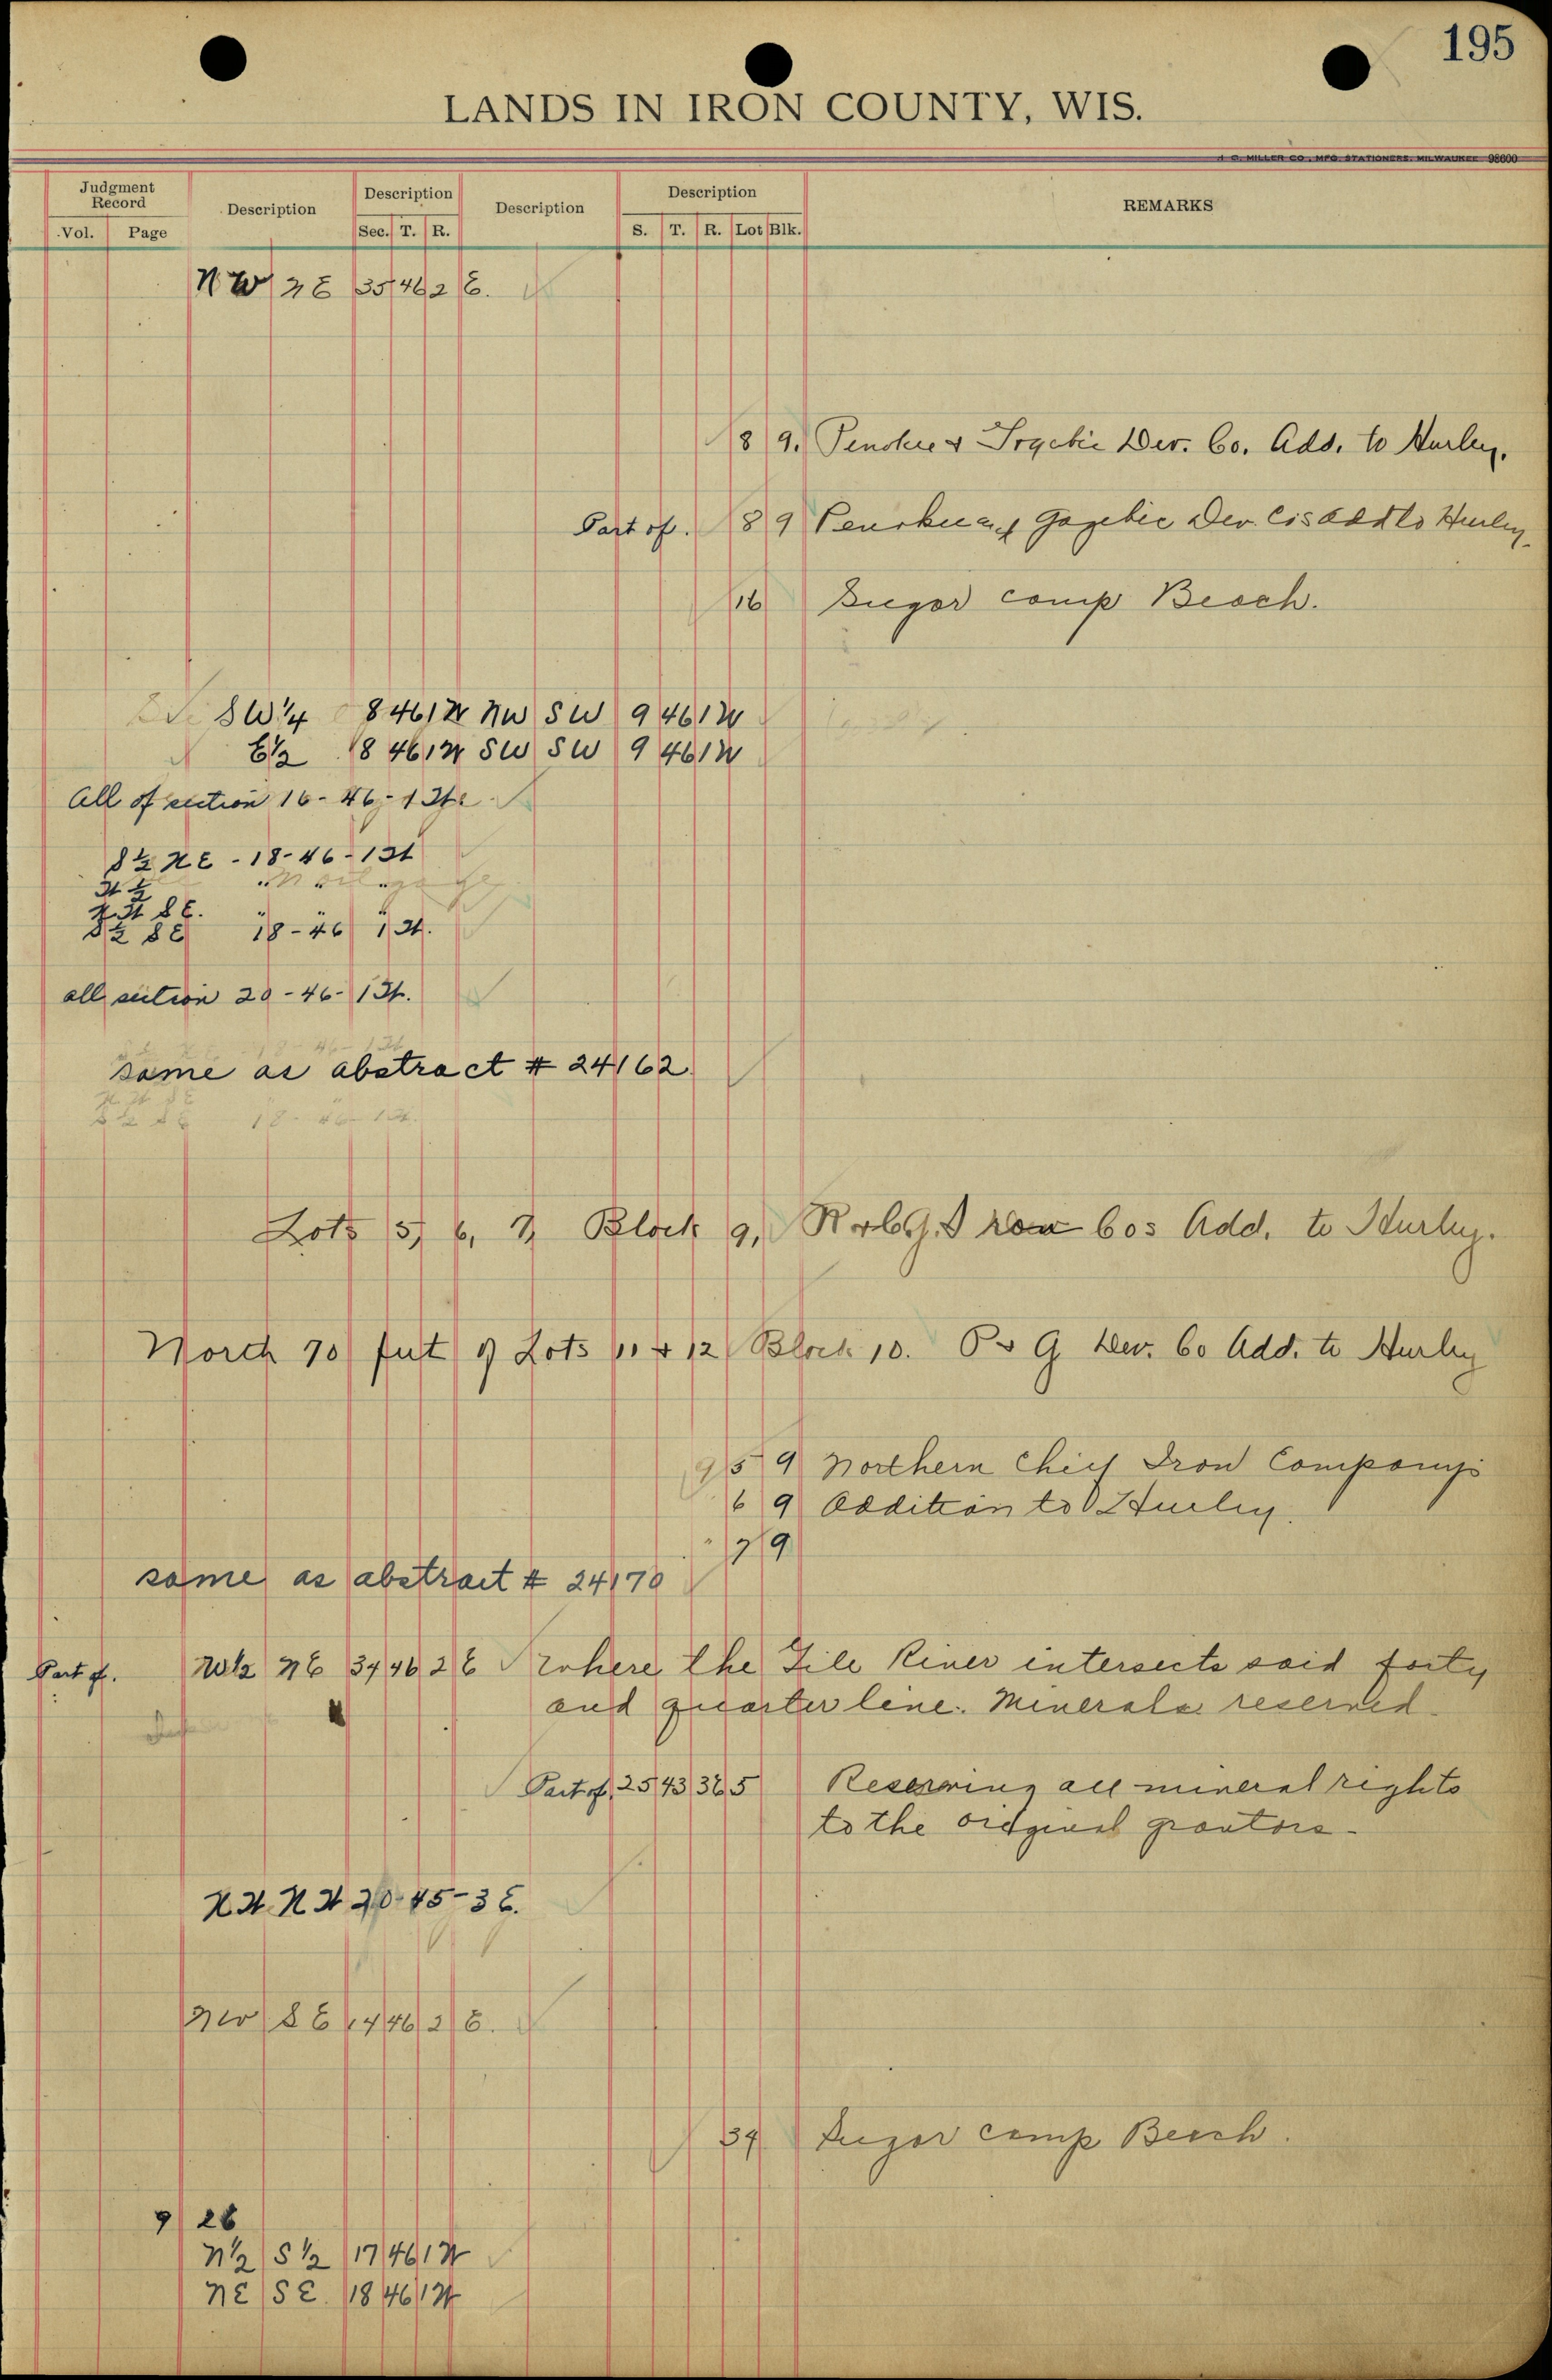 195
LANDS IN IRON COUNTY, WIS.
J. C. MILLER CO., MFG. STATIONERS, MILWAUKEE 98600
Judgment Record Description Description Description Description REMARKS
Vol. Page Sec. T. R. S. T. R. Lot Blk.
NW NE 35 46 2 E.
8 9. Penokee & Gogebic Dev. Co. Add. to Hurley.
Part of. 8 9 Penokee and Gogebic Dev. Co's Add to Hurley.
16 Sugar camp Beach.
SW 1/4 8 46 1 W NW SW 9 46 1 W
E 1/2 18 46 1 W SW SW 9 46 1 W
All of section 16-46-1 W
S 1/2 NE - 18-46-1 W
W 1/2 " " "
NW SE. " " "
S 1/2 SE 18-46 1 W.
all section 20-46-1 W.
same as abstract # 24162
Lots 5, 6, 7, Block 9, Iron Cos Add. to Hurley.
North 70 feet of Lots 11 & 12 Block 10. P & G Dev. Co Add. to Hurley
5 9 Northern Chief Iron Company's
6 9 Addition to Hurley.
7 9
same as abstract # 24170
Part of. W 1/2 NE 34 46 2 E where the Gile River intersects said forty
and quarter line. Minerals reserved.
Part of 25 43 3 E 5 Reserving all mineral rights
to the original grantors.
NW NW 20-45-3 E.
NW SE 14 46 2 E.
34 Sugar camp Beach.
9 26
N 1/2 S 1/2 17 46 1 W
NE SE. 18 46 1 W